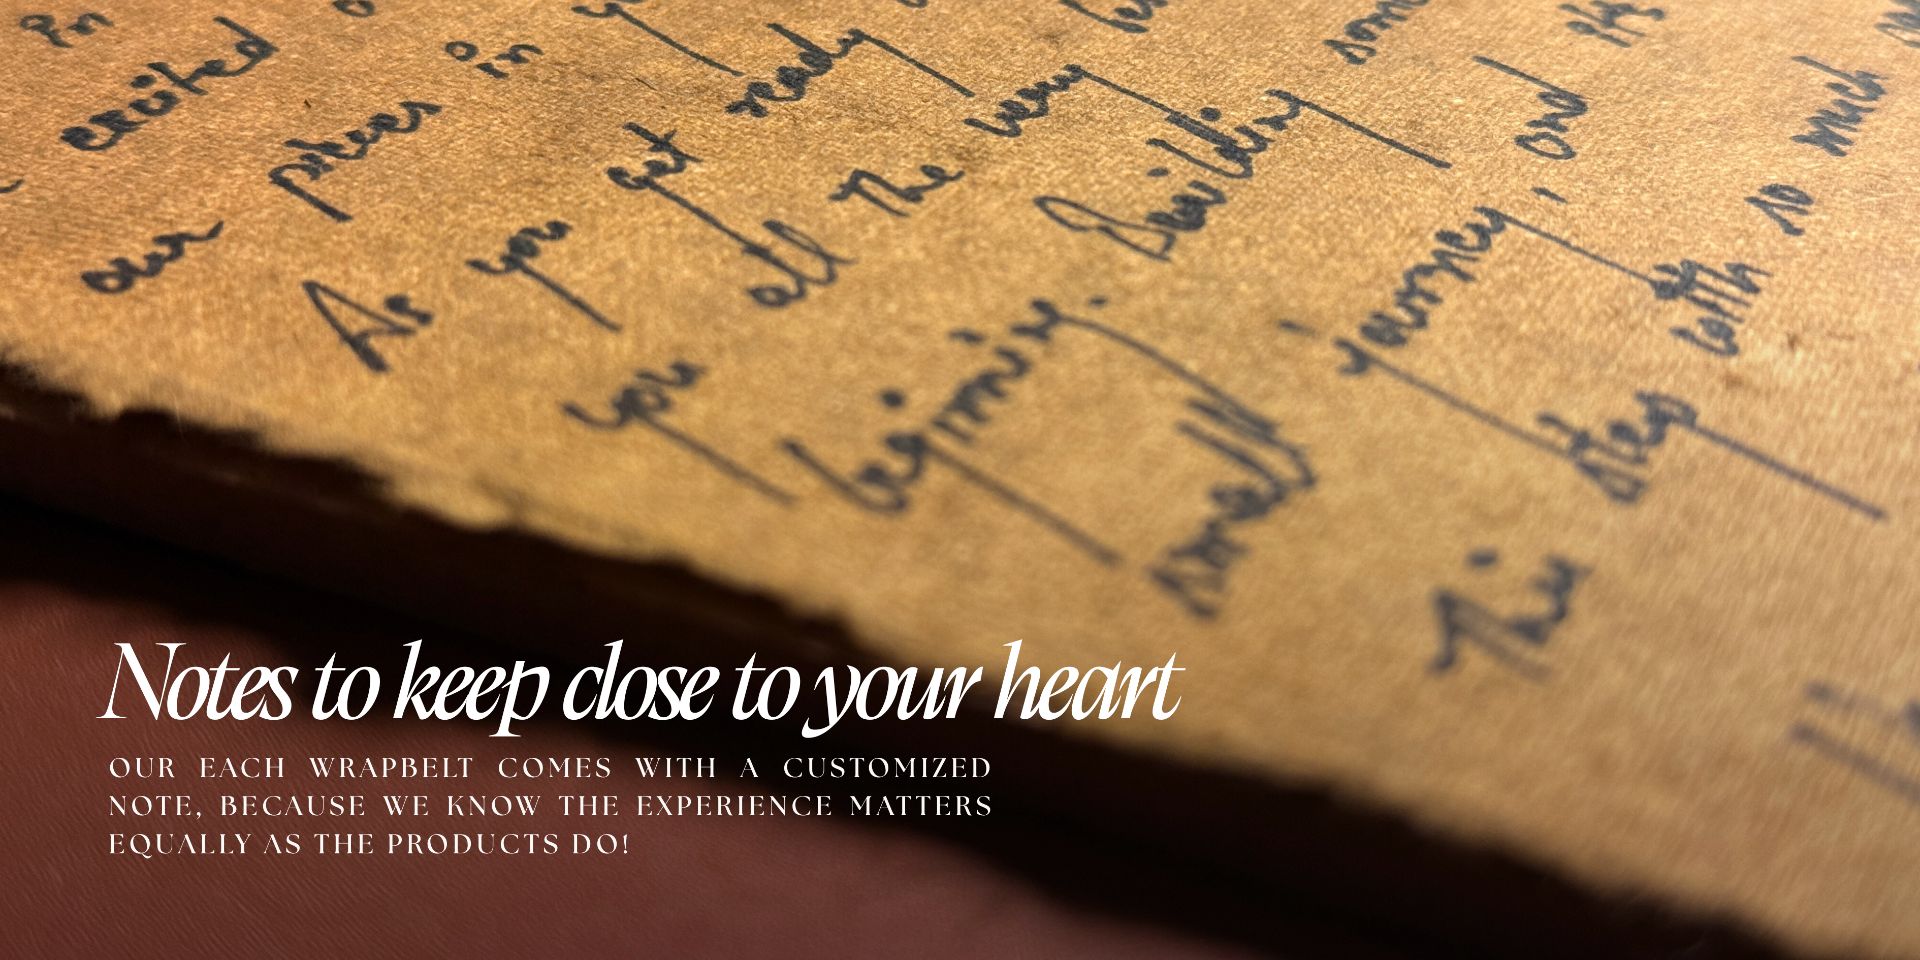 in
excited
our prices in
As you get ready
you all the very
beginning. Building some
small journey, and
This step with so much
Notes to keep close to your heart
OUR EACH WRAPBELT COMES WITH A CUSTOMIZED
NOTE, BECAUSE WE KNOW THE EXPERIENCE MATTERS
EQUALLY AS THE PRODUCTS DO!